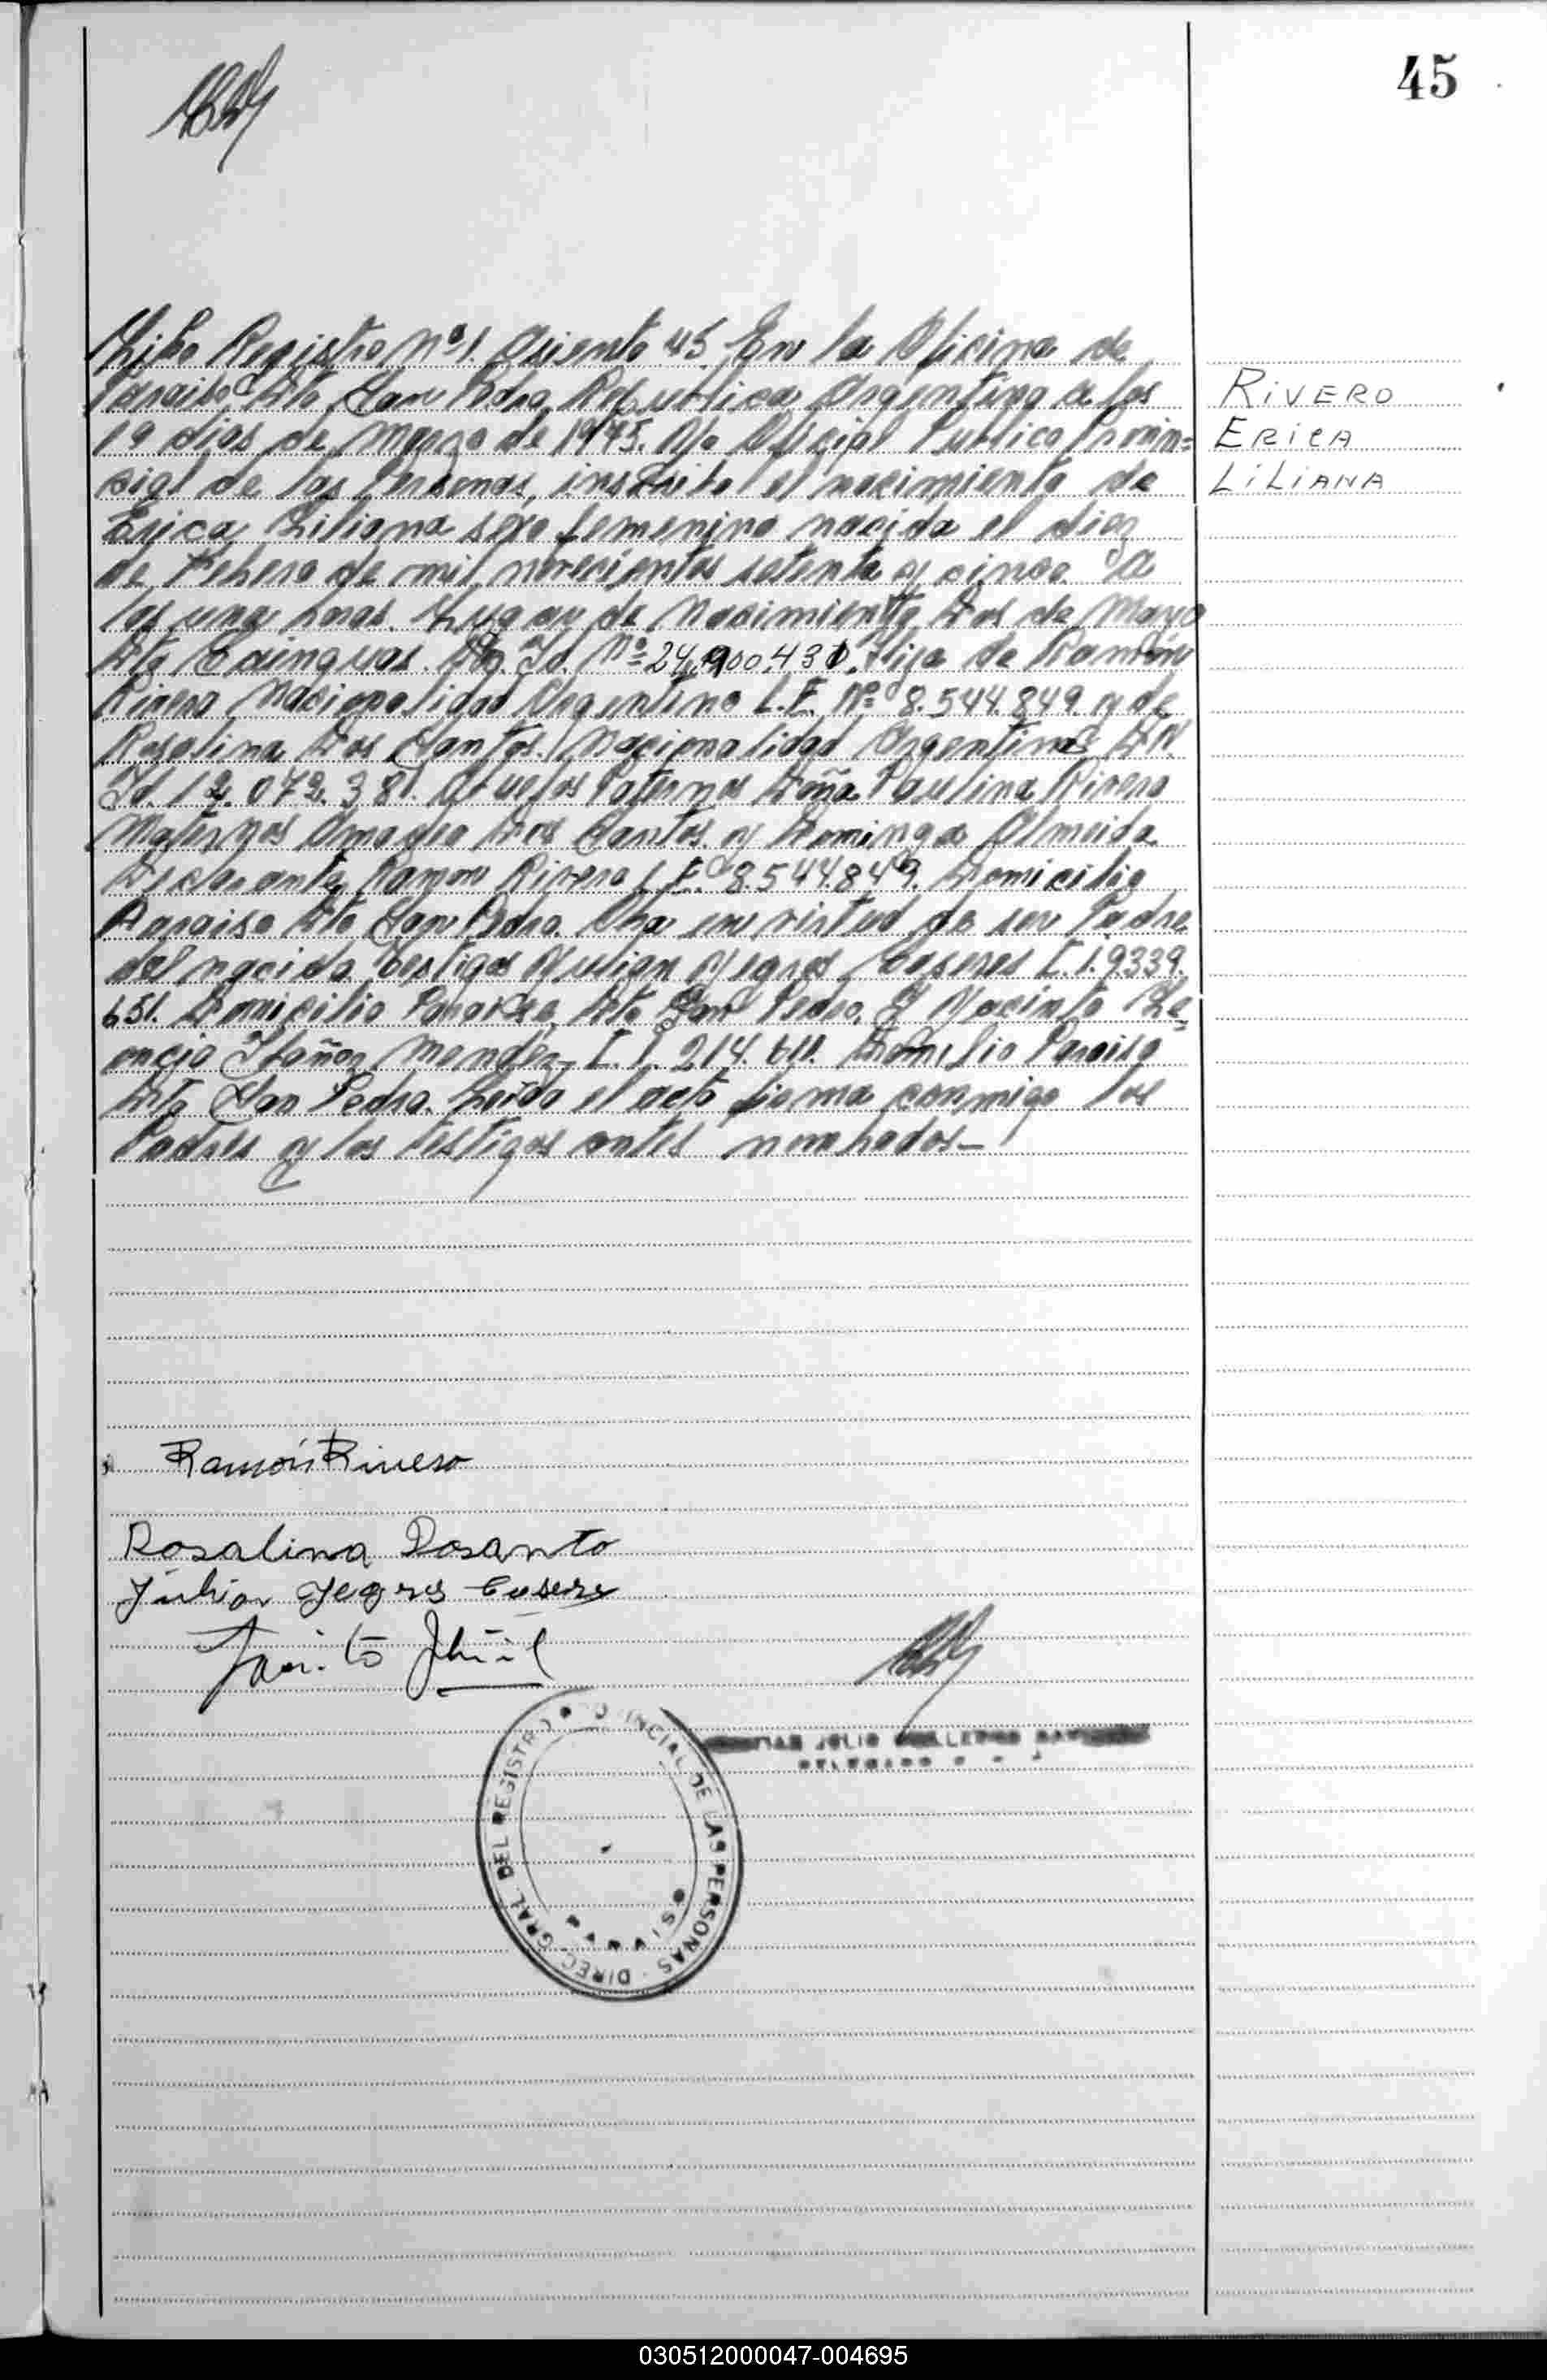 45
Libro Registro Nº 1. Asiento 45. En la Oficina de
Paraiso Dto San Pedro, Republica Argentina a los
19 dias de Marzo de 1975. Yo Oficial Publico Provin=
cial de las Personas, inscribo el nacimiento de
Erica Liliana sexo femenino nacida el diez
de Febrero de mil novecientos setenta y cinco a
las una horas. Lugar de Nacimiento Dos de Mayo
Dto Cainguas. Nº 24.900.430. Hija de Ramón
Rivero Nacionalidad Argentino L.E. Nº 8.544.849 y de
Rosalina Dos Santos. Nacionalidad Argentina DN
Id. 12.072.381. Abuelos Paternos Doña Paulina Rivero
Maternos Amadeo Dos Santos y Dominga Almeida
Declarante Ramon Rivero L.E. 8.544849. Domicilio
Paraiso Dto San Pedro. Obra en virtud de ser Padre
del nacido. Testigos Yulian Yegros Caseres C.I. 9339.
651. Domicilio Paraiso, Dto San Pedro. Y Yacinto
Mendez C.I. 214.611. Domicilio Paraiso
Dto San Pedro. Leída el acta firma conmigo los
Padres y los testigos antes nombrados-
RiVERO
ERiCA
LiLiANA
Ramón Rivero
Rosalina Dosanto
Julian Yegros Casere
DIREC. GRAL. DEL REGISTRO PROVINCIAL DE LAS PERSONAS
JULIO
DELEGADO
030512000047-004695